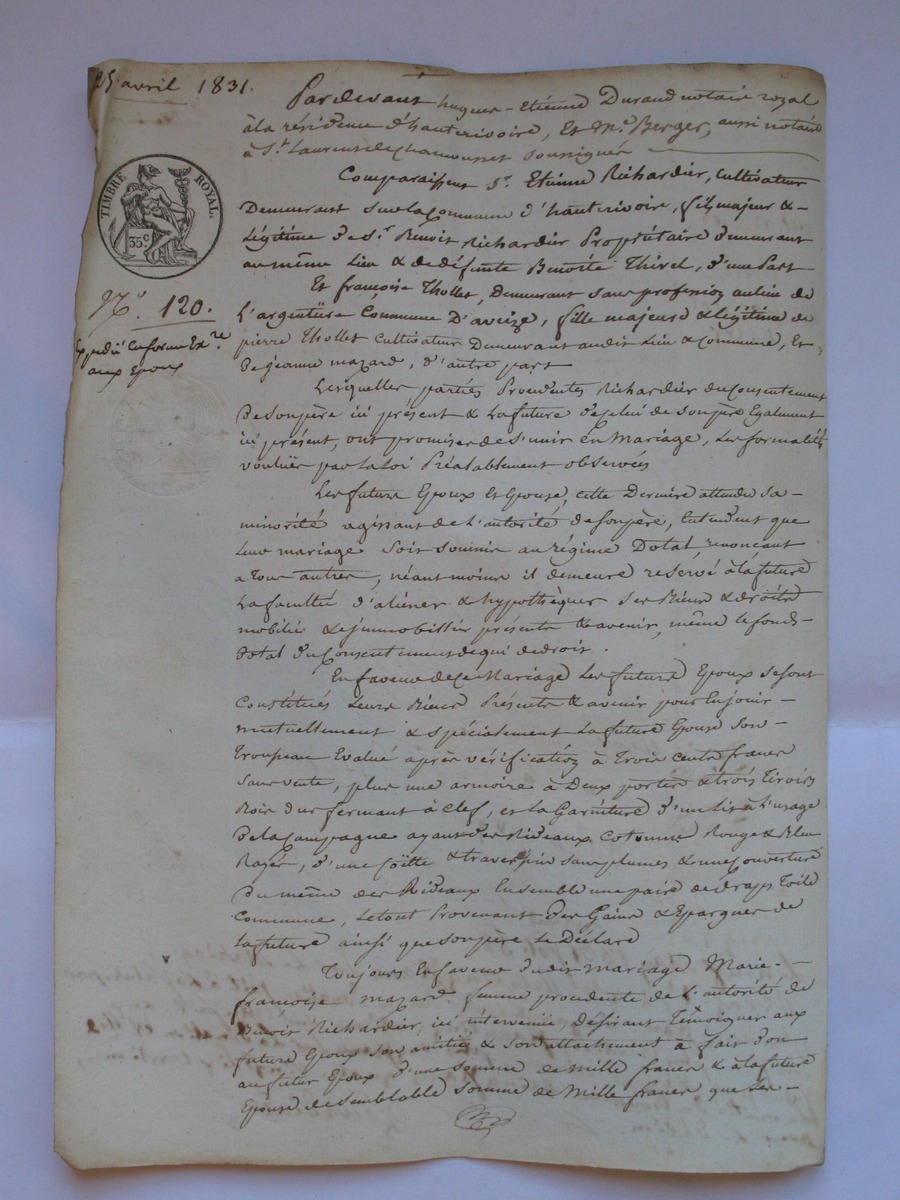 25 avril 1831.
TIMBRE ROYAL.
35 c.
N.° 120.
Expédié en forme Ex.re
aux Epoux
Pardevant hugues-Etienne Durand notaire royal
à la résidence d'hauterivoire, et M.e Berger, aussi notaire
à St. Laurent de Chamousset soussignés
Comparaissent Sr. Etienne Richardier, cultivateur
Demeurant sur la commune d'hauterivoire, fils majeur &
Légitime de Sr. Benoit Richardier Propriétaire demeurant
au même Lieu & de défunte Benoite Thivel, d'une Part
Et françoise Thollet, Demeurant sans profession au lieu de
L'argentiere commune D'aveize, fille majeure & légitime de
pierre Thollet cultivateur Demeurant audit Lieu & commune, Et
De jeanne mazard, d'autre part
Lesquelles parties Procedentes Richardier du consentement
De son père ici présent & la future de celui de son père Egalement
ici présent, ont promis de s'unir en Mariage, les formalités
voulües par la loi Préalablement observées
Les futurs Epoux et Epouse, cette Derniere attendu sa
minorité agissant de L'autorité de son père, Entendent que
Leur mariage soit soumis au régime Dotal, renonçant
a tous autres, néantmoins il demeure reservé à la future
La faculté d'aliéner & hypothéquer ses Biens & droits
mobiliers & immobiliers présents & avenir, même le fond
Dotal du consentement de qui de droit.
En faveur de ce Mariage Les futurs Epoux se sont
Constitués Leurs Biens Présents & avenir pour En jouir
mutuellement & spécialement La future Epouse son
Trousseau Evalué après vérification à Trois cents francs
sans vente, plus une armoire à Deux portes & trois tiroirs
Bois dur fermant à clef, et La Garniture d'un Lit à L'usage
De la campagne ayant des Rideaux cotonne Rouge & Bleu
Rayés, d'une coëtte & traversin sans plumes & une couverture
Du même des Rideaux Ensemble une paire de draps Toile
Commune, Le tout Provenant des Gains & Epargnes de
La future ainsi que son père Le Déclare
Toujours En faveur dudit mariage Marie
françoise mazard femme procedente de L'autorité de
Benoit Richardier, ici intervenue, désirant Témoigner aux
futurs Epoux son amitié & son attachement à fait don
au futur Epoux d'une somme de mille francs & à la future
Epouse de semblable somme de Mille francs que Les